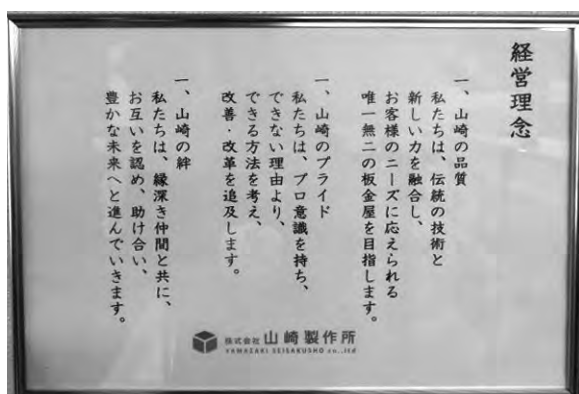 経営理念
一、山崎の品質
私たちは、伝統の技術と
新しい力を融合し、
お客様のニーズに応えられる
唯一無二の板金屋を目指します。
一、山崎のプライド
私たちは、プロ意識を持ち、
できない理由より、
できる方法を考え、
改善・改革を追及します。
一、山崎の絆
私たちは、縁深き仲間と共に、
お互いを認め、助け合い、
豊かな未来へと進んでいきます。
株式会社 山崎製作所
YAMAZAKI SEISAKUSHO co.,ltd